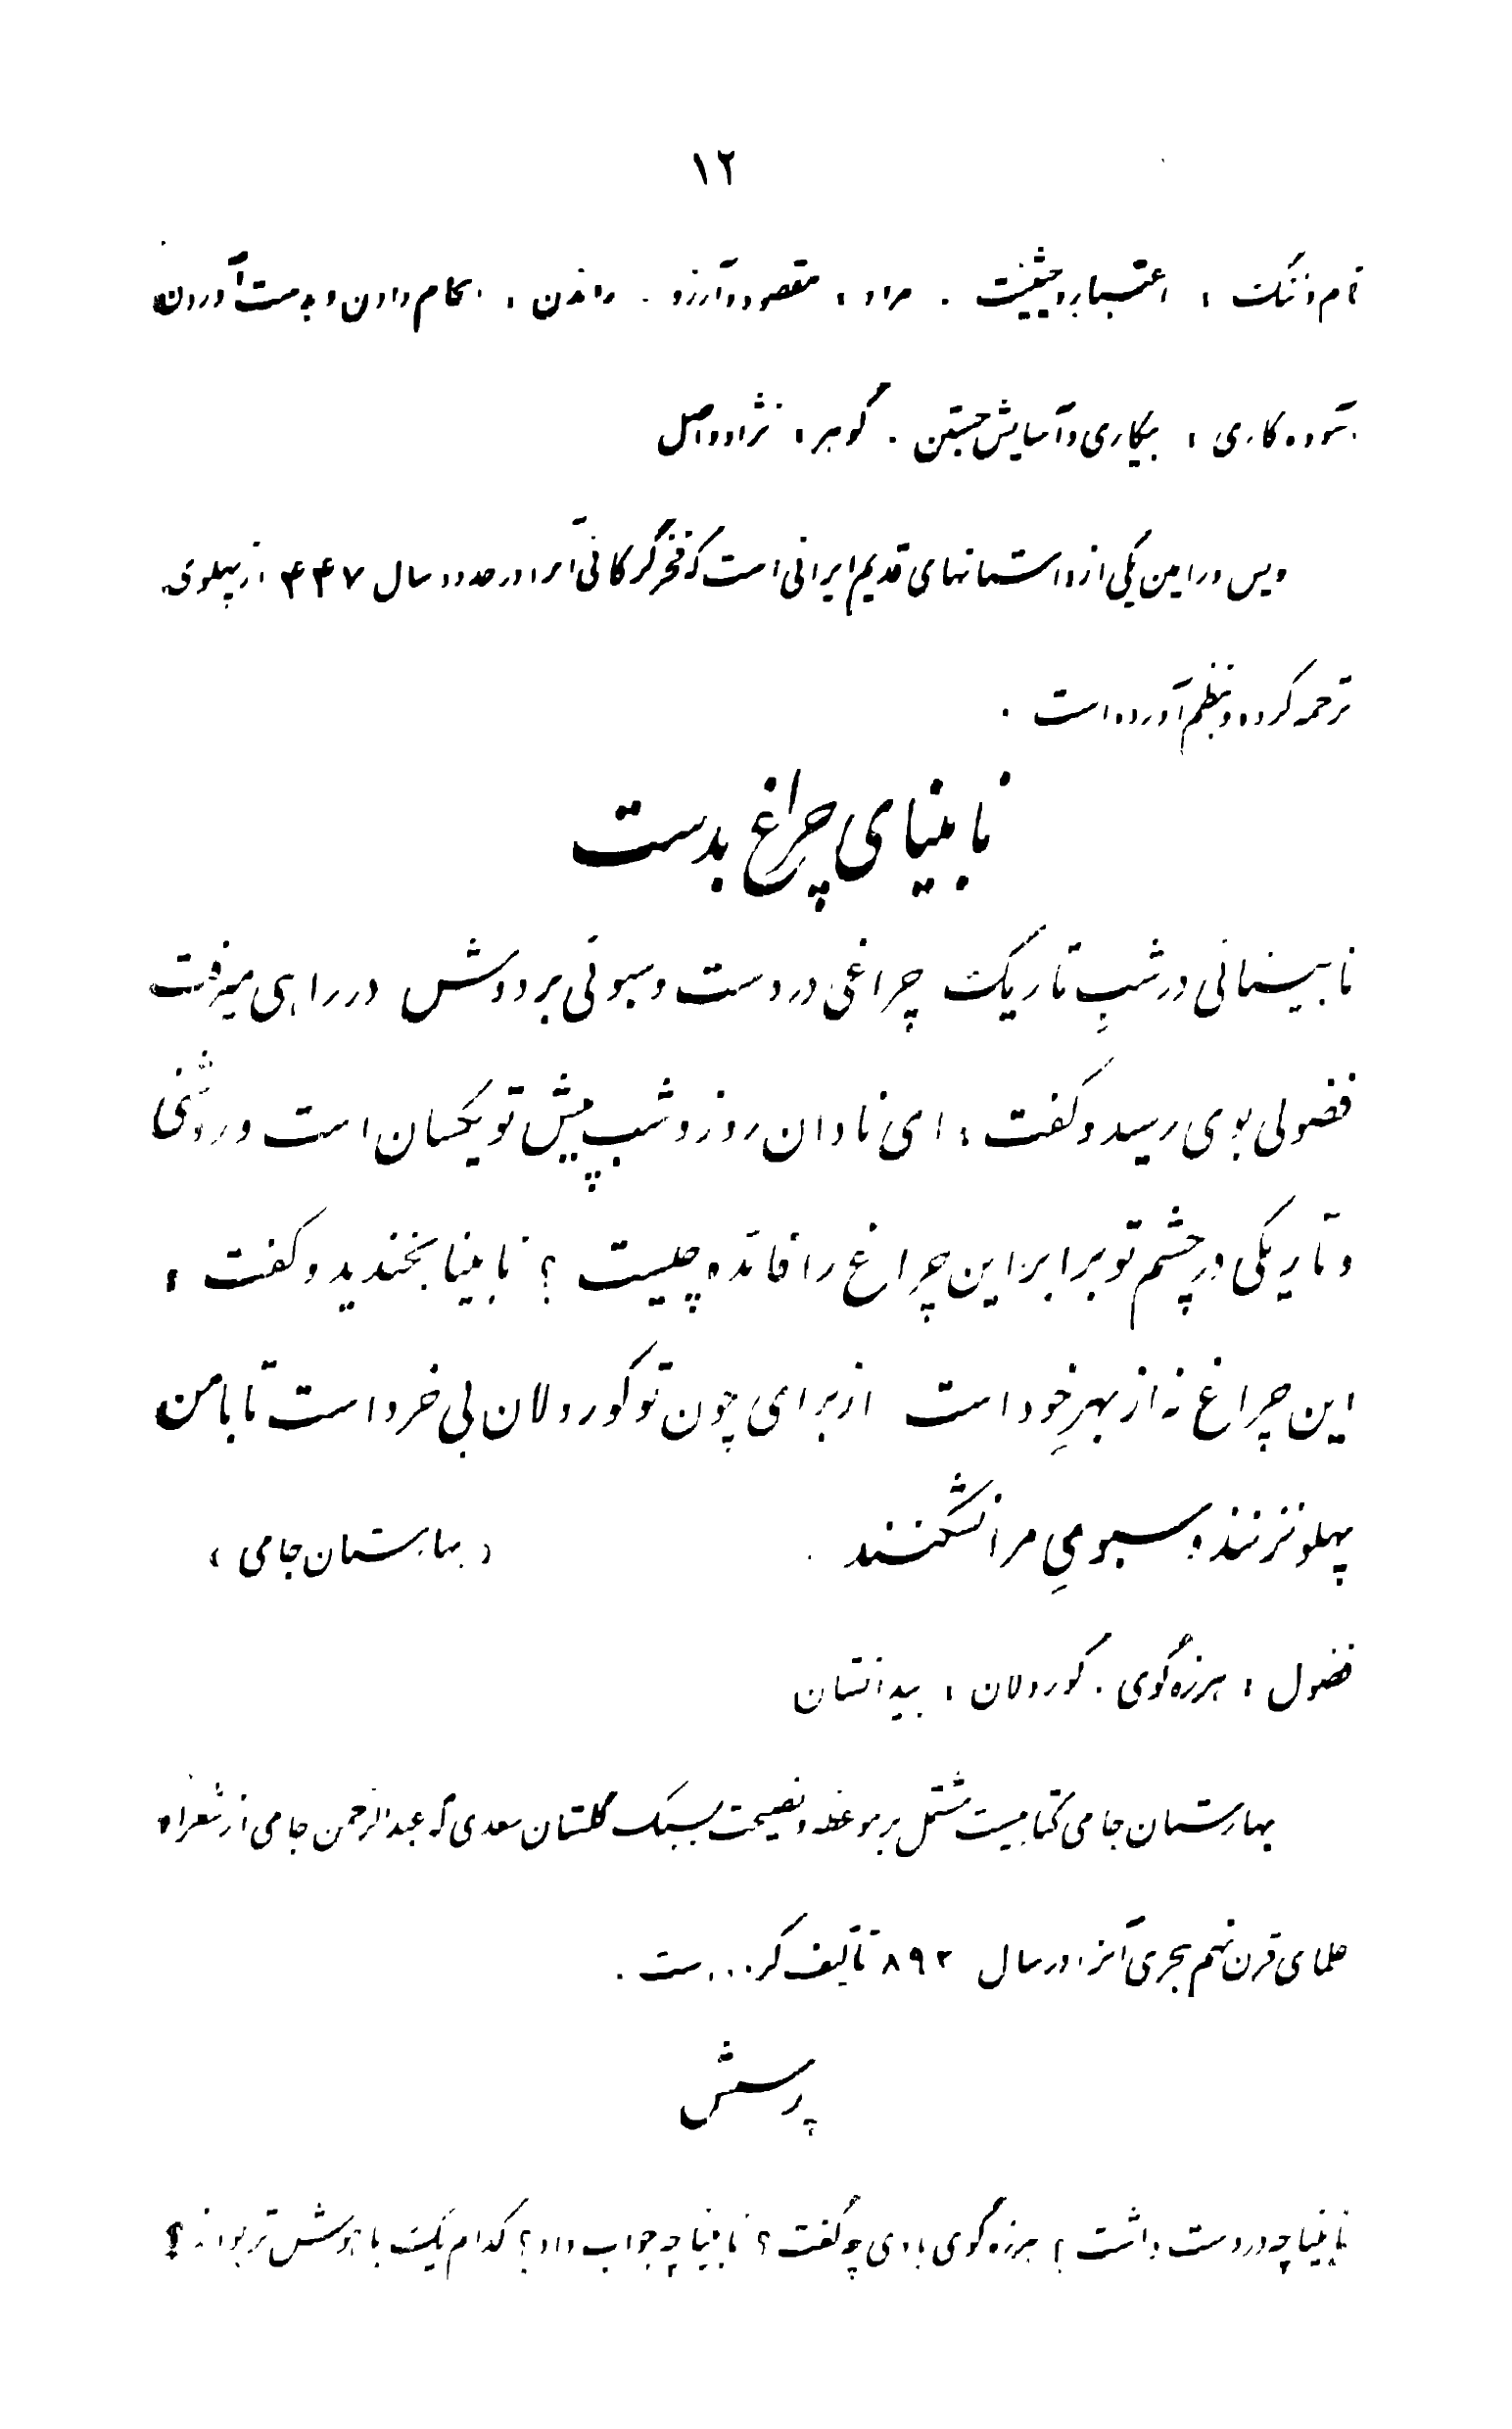 ۱۲
نام و ننگ : اعتبار و حیثیت . مراد : مقصود و آرزو . راندن : بکام دادن و بدست آوردن
آسوده کاری : بیکاری و آسایش جستن . گوهر : نژاد و اصل
ویس و رامین یکی از داستانهای قدیم ایرانی است که فخر گرگانی آنرا در حدود سال ۴۴۷ از پهلوی
ترجمه کرده و بنظم آورده است .
نابینای چراغ بدست
نابینائی در شبِ تاریک چراغی در دست و سبوئی بر دوش در راهی میرفت
فضولی بوی رسید و گفت : ای نادان روز و شب پیش تو یکسان است و روشنی
و تاریکی در چشم تو برابر این چراغ را فائده چیست ؟ نابینا بخندید و گفت :
این چراغ نه از بهرِ خود است از برای چون تو کوردلان بی خرد است تا با من
پهلو نزنند و سبویِ مرا نشکنند . ( بهارستان جامی )
فضول : هرزه گوی . کوردلان : بیدانشان
بهارستان جامی کتابیست مشتمل بر موعظه و نصیحت بسبک گلستان سعدی که عبدالرحمن جامی از شعرا و
علمای قرن نهم هجری آنرا در سال ۸۹۲ تألیف کرده است .
پرسش
نابینا چه در دست داشت ؟ هرزه گوی با وی چه گفت ؟ نابینا چه جواب داد ؟ کدام یک با هوش تر بودند ؟